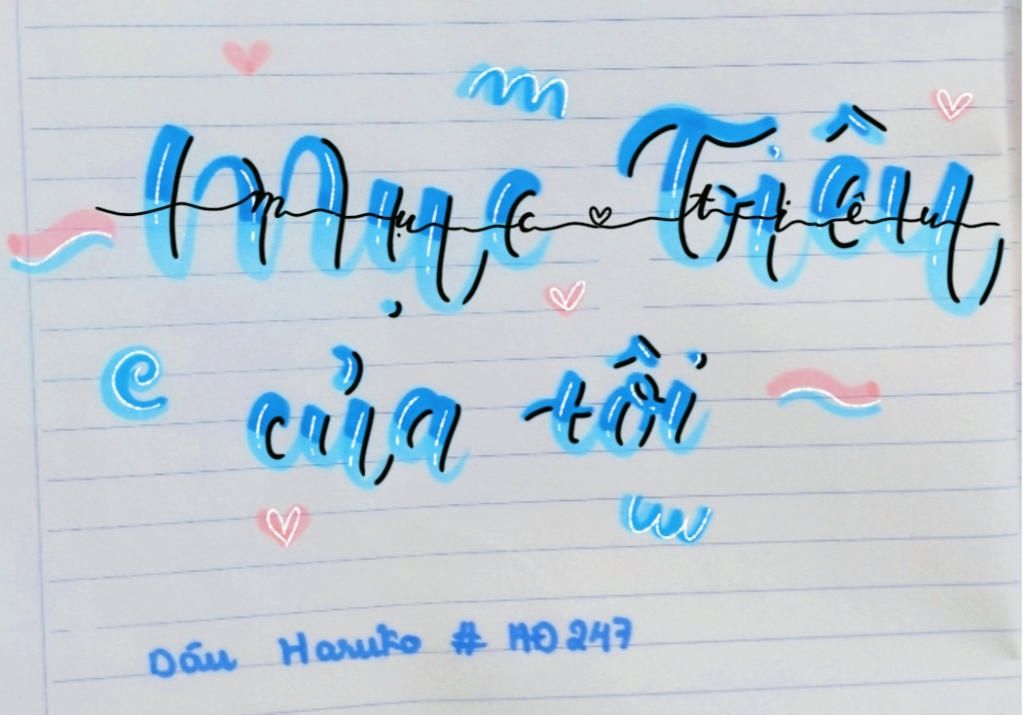 Mục Triêu
mục triêu
của tôi
Dáu Haruko # AĐ247